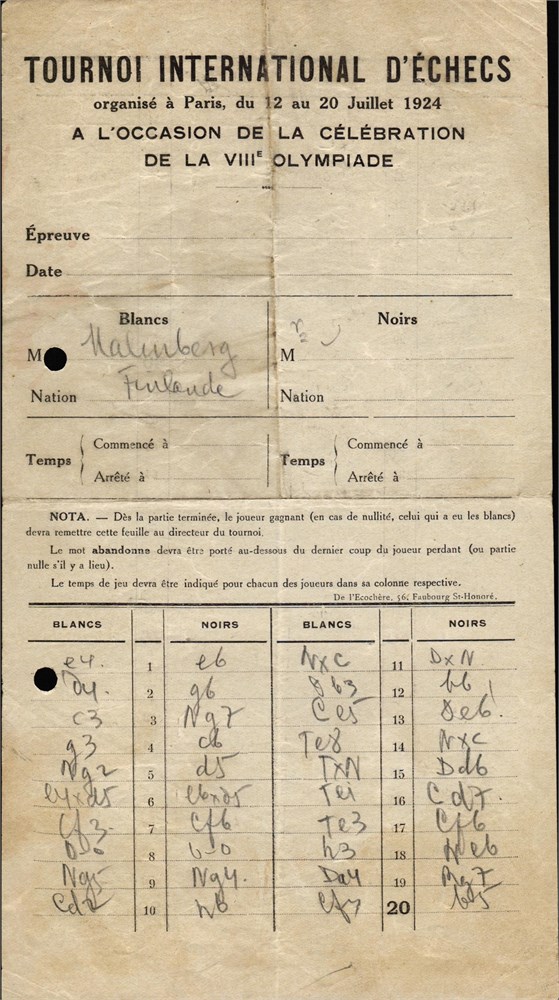 TOURNOI INTERNATIONAL D'ÉCHECS
organisé à Paris, du 12 au 20 Juillet 1924
A L'OCCASION DE LA CÉLÉBRATION
DE LA VIIIE OLYMPIADE
Épreuve
Date
Blancs Noirs
M Malmberg M
Nation Finlande Nation
Temps Commencé à Temps Commencé à
Arrêté à Arrêté à
NOTA. — Dès la partie terminée, le joueur gagnant (en cas de nullité, celui qui a eu les blancs)
devra remettre cette feuille au directeur du tournoi.
Le mot abandonne devra être porté au-dessous du dernier coup du joueur perdant (ou partie
nulle s'il y a lieu).
Le temps de jeu devra être indiqué pour chacun des joueurs dans sa colonne respective.
De l'Ecochère, 56, Faubourg St-Honoré.
BLANCS NOIRS BLANCS NOIRS
e4. 1 e6 NxC 11 DxN
D4. 2 g6 Db3 12 b6
c3 3 Ng7 Ce5 13 De6!
g3 4 c6 Te8 14 NxC
Ng2 5 d5 TxN 15 Dd6
e4xd5 6 e6xd5 Te1 16 Cd7.
Cf3 7 Cf6 Te3 17 Cf6
0-0 8 0-0 h3 18 Ne6
Ng5 9 Ng4. Da4 19 Ng7
Cd2 10 h6 Cf3 20 b5